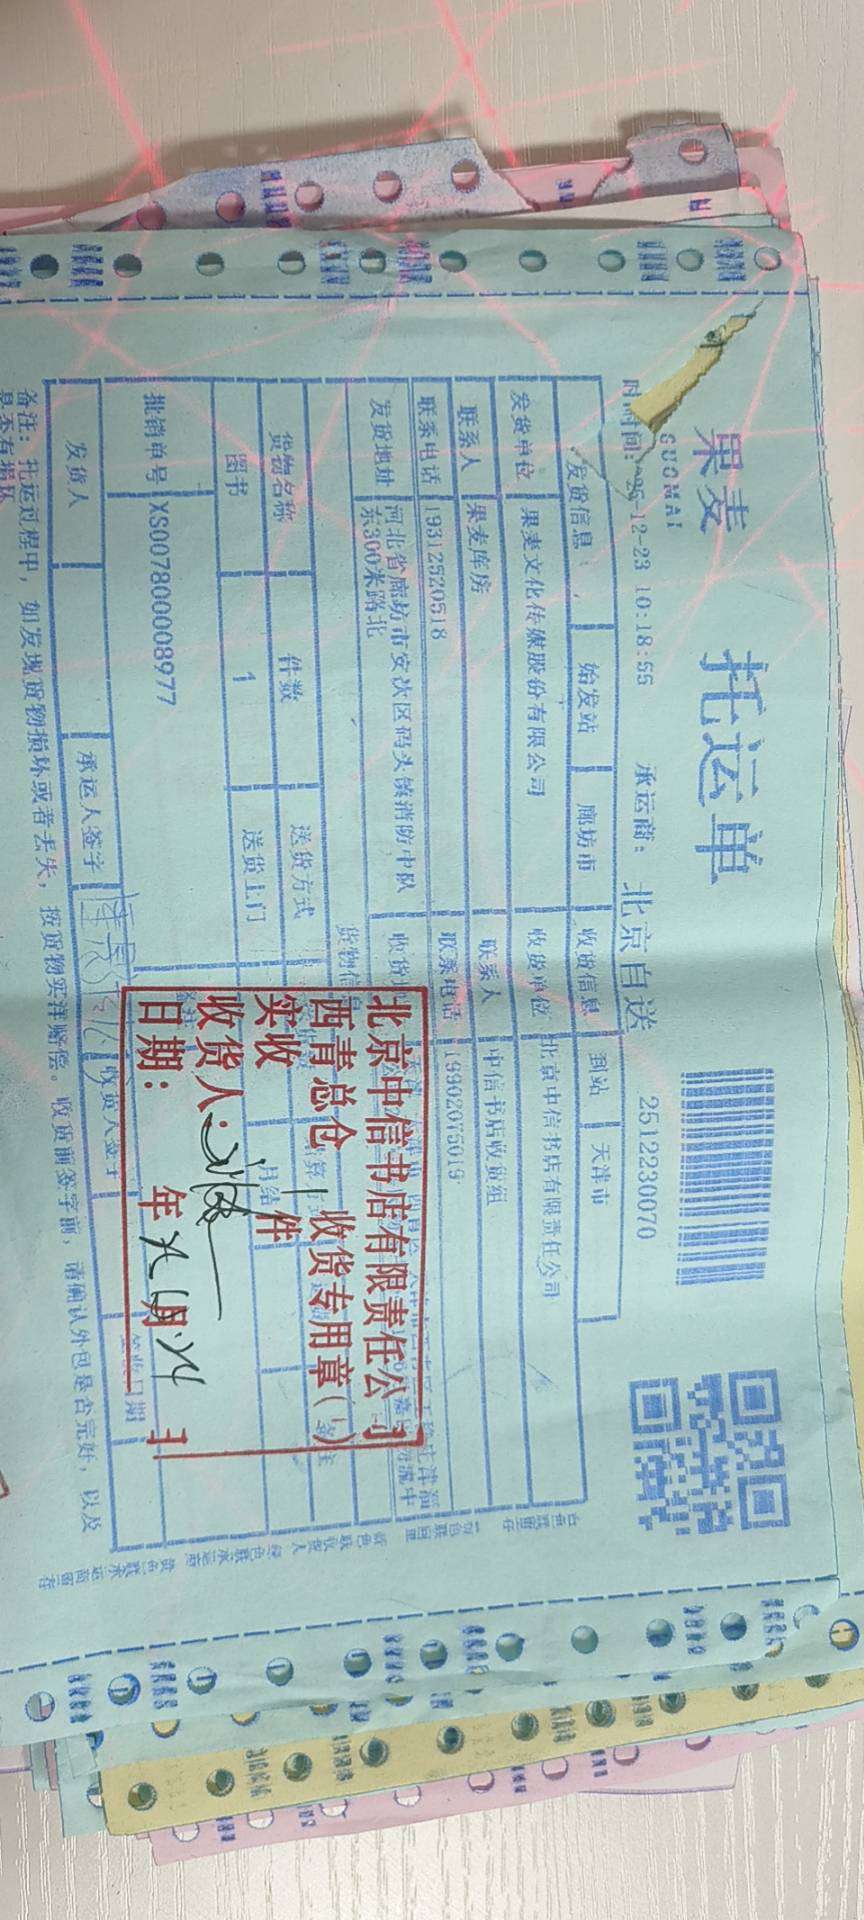 果麦
GUOMAI
托运单
2512230070
时间: 25-12-23 10:18:55 承运商: 北京自送
发货信息 始发站 廊坊市 收货信息 到站 天津市
发货单位 果麦文化传媒股份有限公司 收货单位 北京中信书店有限责任公司
联系人 果麦库房 联系人 中信书店收货组
联系电话 19312520518 联系电话 19902075015
发货地址 河北省廊坊市安次区码头镇消防中队
东300米路北
收货地
货物信息
货物名称 件数 送货方式
图书 1 送货上门
月结
批销单号 XS00780008977
发货人 承运人签字 收货人签字 签收日期
备注: 托运过程中, 如发现货物损坏或者丢失, 按货物实洋赔偿。收货前签字前, 请确认外包是否完好, 以及
是否有损坏
北京中信书店有限责任公司
西青总仓 收货专用章(1)
实收 1 件
收货人:
日期: 年 月
白色联留存